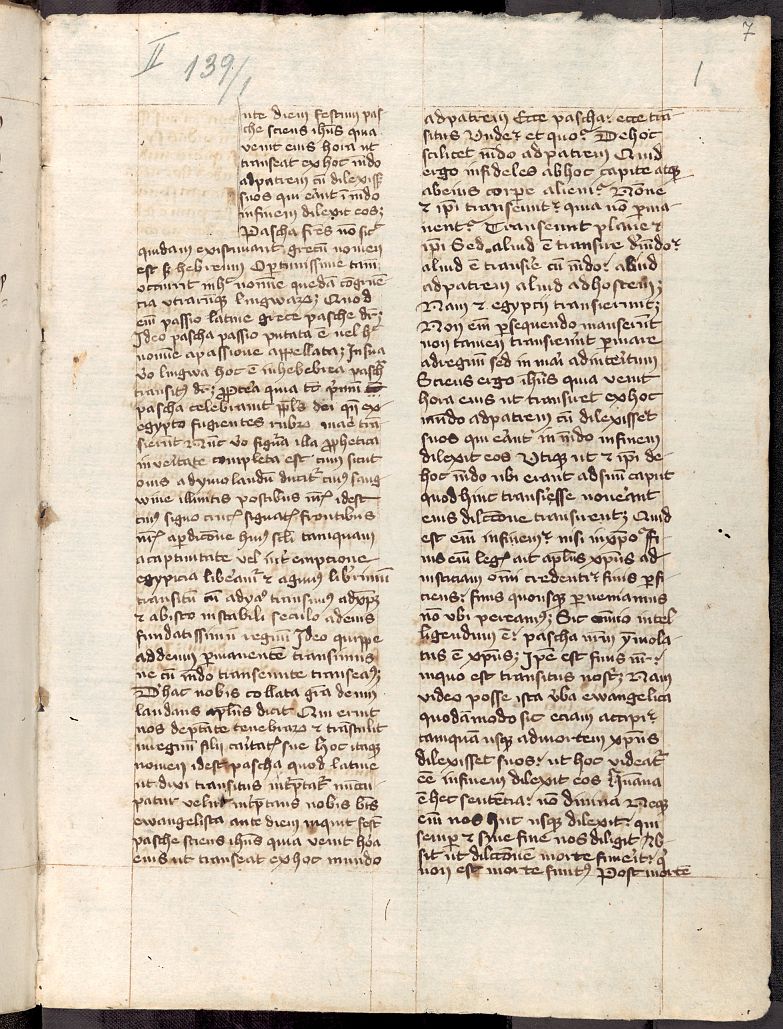 7
II 139/1
1
nte diem festum pas
che sciens ihus quia
venit eius hora ut
transeat ex hoc mdo
ad patrem cu dilexiss
suos qui eant i mdo
in finem dilexit eos;
Pascha fres no sic
quidam existimant grecu nomen
est s hebreum Oportunissime tam
occurrit in h nomine queda cogrue
cia utrarumq lingwaru; Quod
em passio latine grece pasche dr;
Ideo pascha passio putata e vel h
nomine a passione appellata; In sua
vo lingwa hoc e in hebebrea pasch
transitus dr; Propterea quia tc primu
pascha celebravit ppls dei qn ex
egypto fugientes rubru mare tra
sierut Nunc vo figura illa prophetica
in veritate completa est cum sicut
ovis ad ymolandu ducitr cuius sang
wine illinitis postibus nris idest
cuius signo crucis signatis frontibus
nris a perdicone huius scli tamquam
a captivitate vel interemptione
egypcia liberamur et agimus
transitu cu a dyabolo transimus ad xpm
et ab isto instabili seculo ad eius
fundatissimu regnum Ideo quippe
ad deum permanentem transimus
ne cu mdo transeunte transeamus;
D hac nobis collata gra deum
laudans apls dicit Qui eruit
nos de ptate tenebraru et transtulit
in regnum filii caritatis sue hoc itaq
nomen idest pascha quod latine
ut dixi transitus interptatr nuncu
patur velut interptans nobis bts
ewangelista ante diem inquit festu
pasche sciens ihus quia venit hora
eius ut transeat ex hoc mundo
ad patrem Ecce pascha: ecce tra
situs Unde et quo? De hoc
scilicet mdo ad patrem Quid
ergo infideles ab hoc capite atq
ab eius corpore alieni? None
et ipi transeunt: quia no perma
nent? Transeunt plane et
ipi Sed aliud e transire d mdo:
aliud e transire cu mdo: aliud
ad patrem aliud ad hostem;
Nam et egyptii transierunt;
Non em persequendo manserunt
non tamen transierut per mare
ad regnum sed in mari ad interitum
Sciens ergo ihus quia venit
hora eius ut transiret ex hoc
mundo ad patrem cu dilexisset
suos qui erant in mdo in finem
dilexit eos Utiq ut et ipi de
hoc mdo ubi erant ad suum caput
quod hinc transiisse noverant
eius dilcone transirent; Quid
est em in finem: nisi in xpo? Fi
nis em legis ait apls xpus ad
iusticiam omi credenti: finis perfi
ciens: finis quousq perveniamus
no ubi pereamus; Sic omnino intel
ligendum e: pascha nrm ymola
tus e xpus; Ipe est finis nr:
in quo est transitus noster; Nam
video posse ista verba ewangelica
quodammodo sic eciam accipi:
tamquam usq ad mortem xpus
dilexisset suos: ut hoc videatr
ee in finem dilexit eos Humana
e hec sentencia: no divina Neq
em nos hnc usq dilexit: qui
semper et sine fine nos diligit Ab
sit ut dilconem morte finierit: qi
non est morte finitus; Post morte